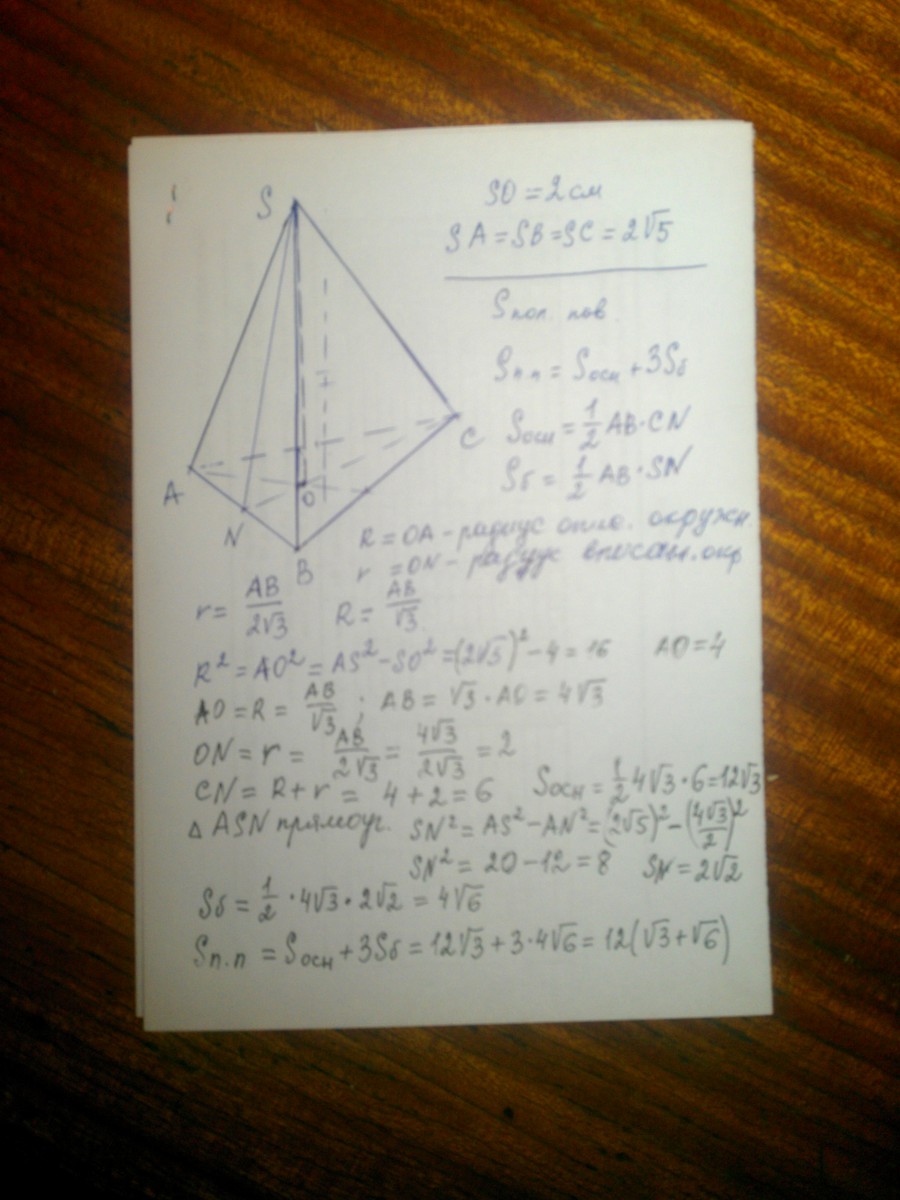 S
SO = 2 см
SA = SB = SC = 2√5
Sпол. пов.
Sп.п = Sосн + 3Sб
C
Sосн = 1/2 AB · CN
Sб = 1/2 AB · SN
A
O
N
B
R = OA - радиус опис. окружн.
r = ON - радиус вписан. окр
r = AB/2√3 R = AB/√3
R² = AO² = AS² - SO² = (2√5)² - 4 = 16 AO = 4
AO = R = AB/√3 ; AB = √3 · AO = 4√3
ON = r = AB/2√3 = 4√3/2√3 = 2
CN = R + r = 4 + 2 = 6 Sосн = 1/2 4√3 · 6 = 12√3
△ ASN прямоуг. SN² = AS² - AN² = (2√5)² - (4√3/2)²
SN² = 20 - 12 = 8 SN = 2√2
Sб = 1/2 · 4√3 · 2√2 = 4√6
Sп.п = Sосн + 3Sб = 12√3 + 3·4√6 = 12(√3 + √6)